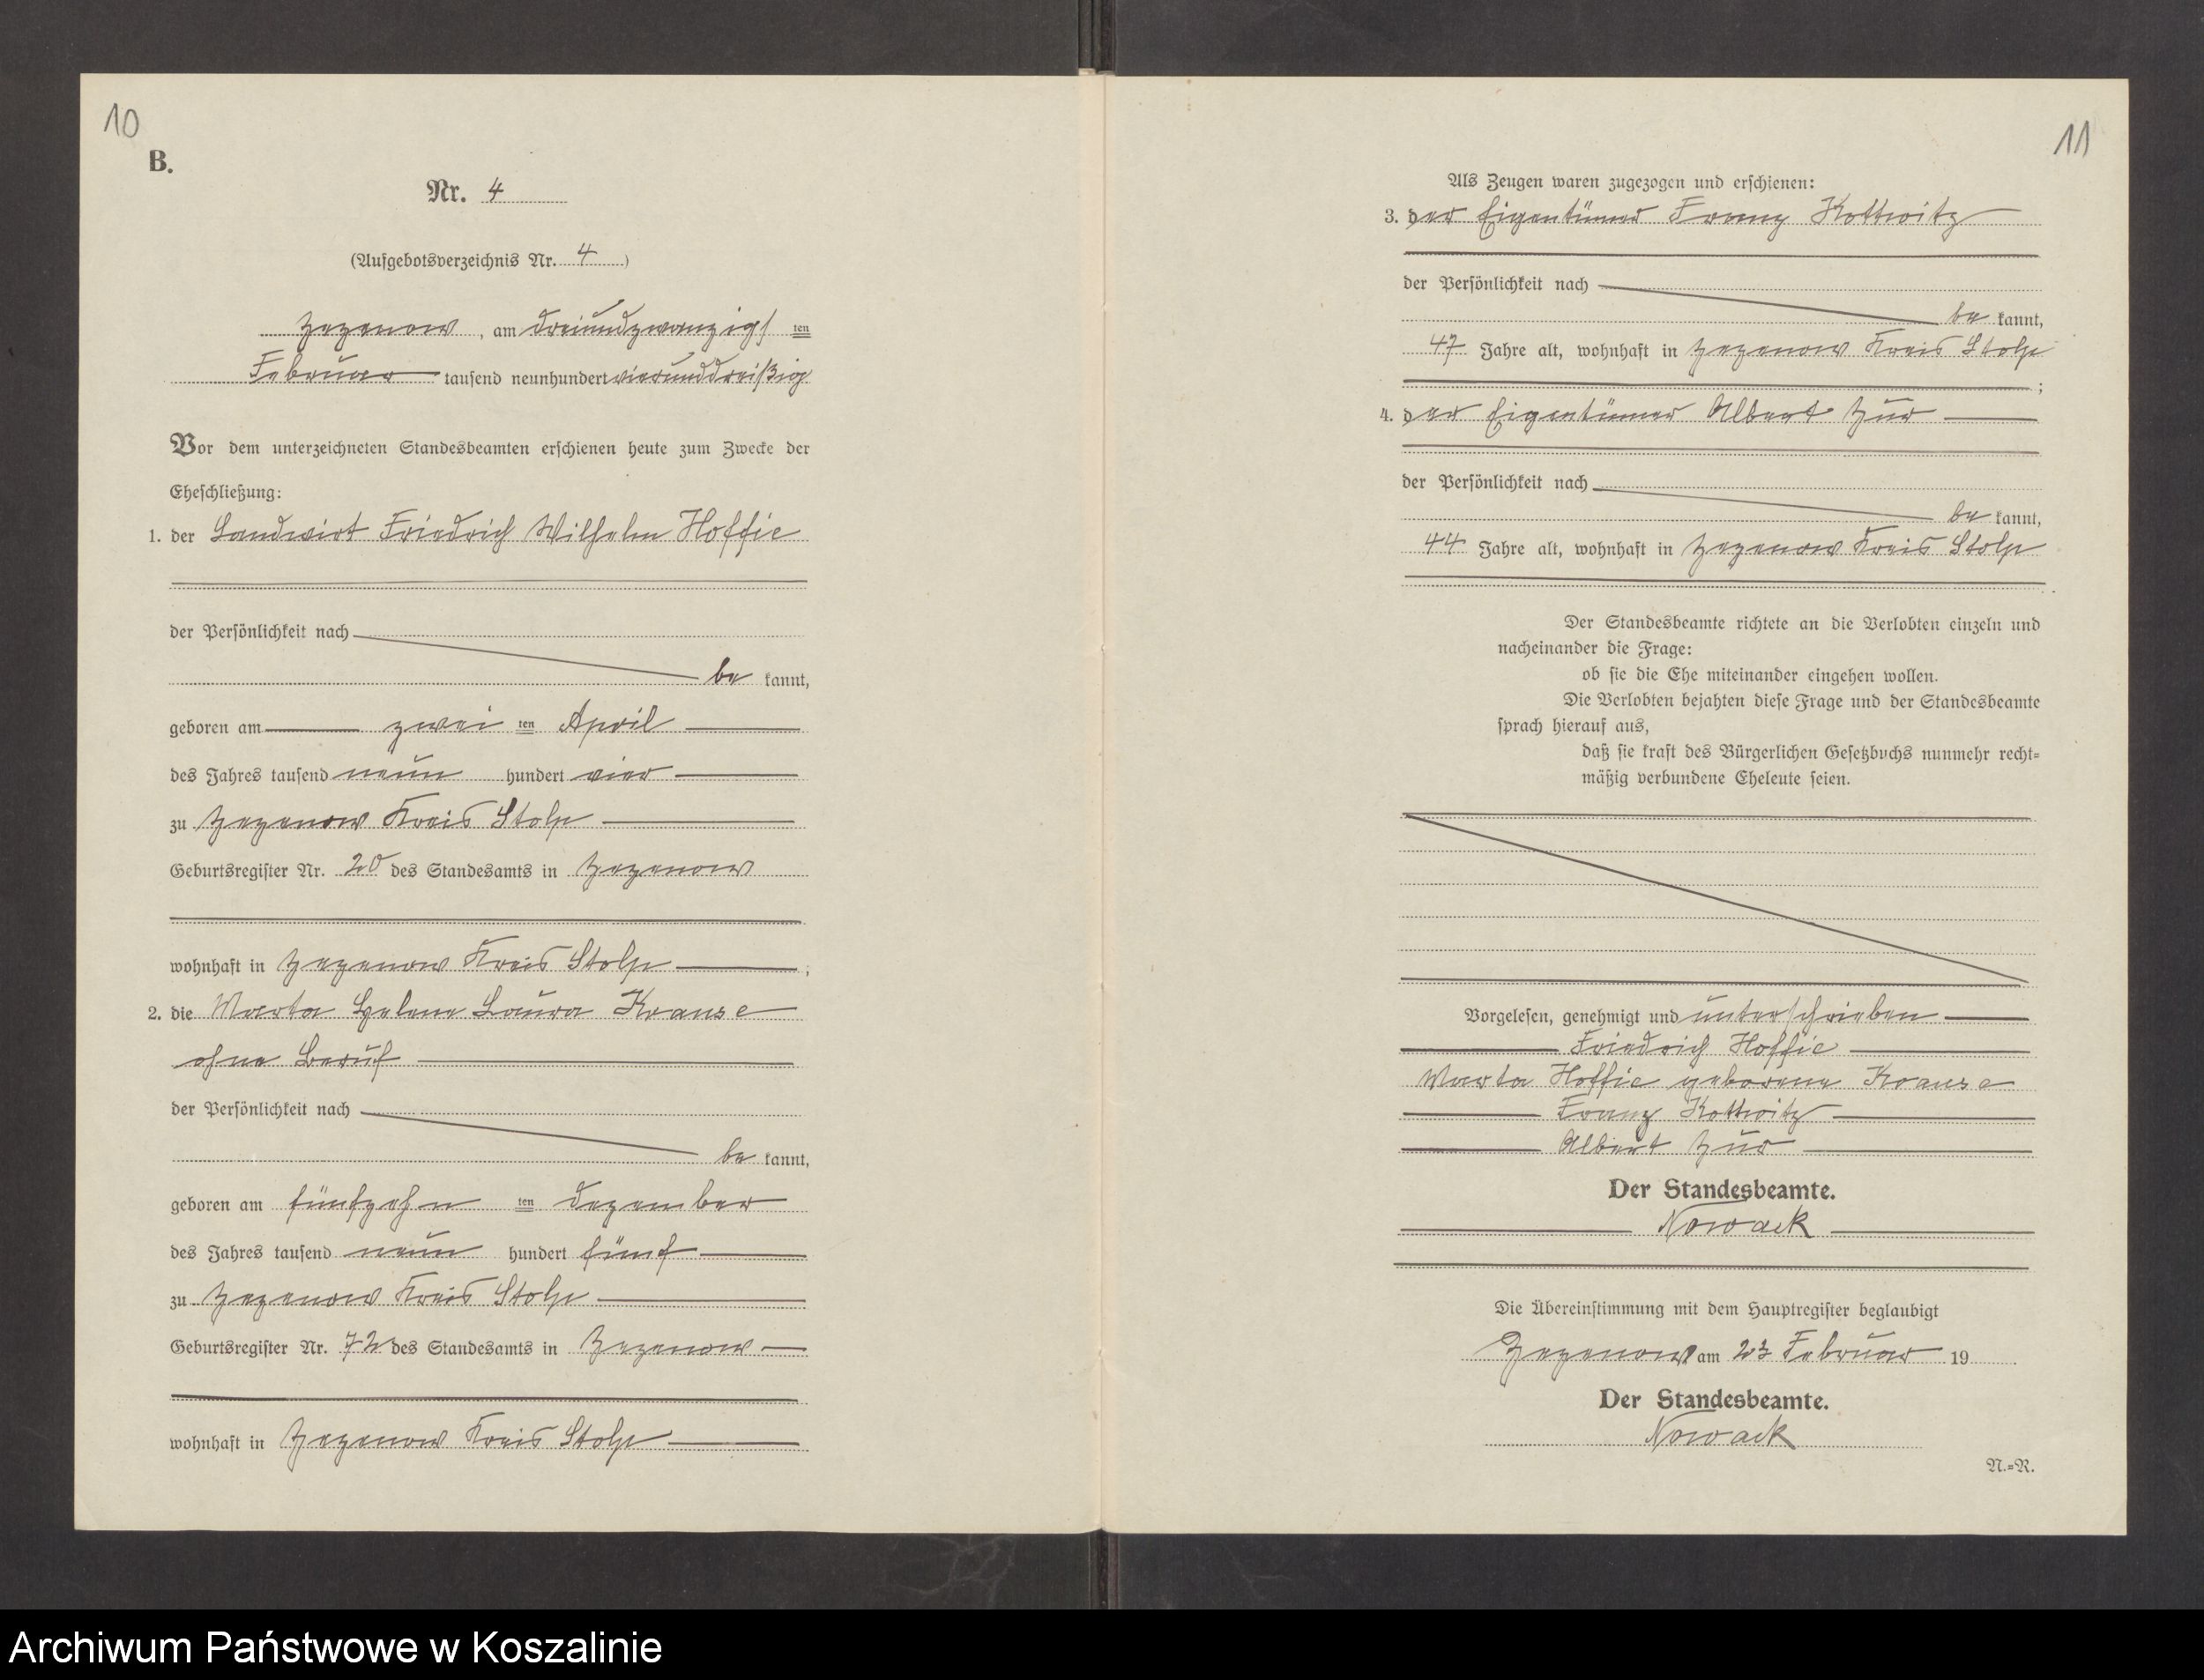 10
B.
Nr. 4
(Aufgebotsverzeichnis Nr. 4)
Zezenow, am dreiundzwanzigsten
Februar tausend neunhundert vierunddreißig
Vor dem unterzeichneten Standesbeamten erschienen heute zum Zwecke der
Eheschließung:
1. der Landwirt Friedrich Wilhelm Hoffie
der Persönlichkeit nach
be kannt,
geboren am zwei ten April
des Jahres tausend neun hundert vier
zu Zezenow Kreis Stolp
Geburtsregister Nr. 20 des Standesamts in Zezenow
wohnhaft in Zezenow Kreis Stolp ;
2. die Marta Helene Laura Krause
ohne Beruf
der Persönlichkeit nach
be kannt,
geboren am fünfzehn ten Dezember
des Jahres tausend neun hundert fünf
zu Zezenow Kreis Stolp
Geburtsregister Nr. 72 des Standesamts in Zezenow
wohnhaft in Zezenow Kreis Stolp
11
Als Zeugen waren zugezogen und erschienen:
3. der Eigentümer Franz Kottwitz
der Persönlichkeit nach
be kannt,
47 Jahre alt, wohnhaft in Zezenow Kreis Stolp
;
4. der Eigentümer Albert Zür
der Persönlichkeit nach
be kannt,
44 Jahre alt, wohnhaft in Zezenow Kreis Stolp
Der Standesbeamte richtete an die Verlobten einzeln und
nacheinander die Frage:
ob sie die Ehe miteinander eingehen wollen.
Die Verlobten bejahten diese Frage und der Standesbeamte
sprach hierauf aus,
daß sie kraft des Bürgerlichen Gesetzbuchs nunmehr recht=
mäßig verbundene Eheleute seien.
Vorgelesen, genehmigt und unterschrieben
Friedrich Hoffie
Marta Hoffie geborene Krause
Franz Kottwitz
Albert Zür
Der Standesbeamte.
Nowack
Die Übereinstimmung mit dem Hauptregister beglaubigt
Zezenow am 23 Februar 19
Der Standesbeamte.
Nowack
N.=R.
Archiwum Państwowe w Koszalinie